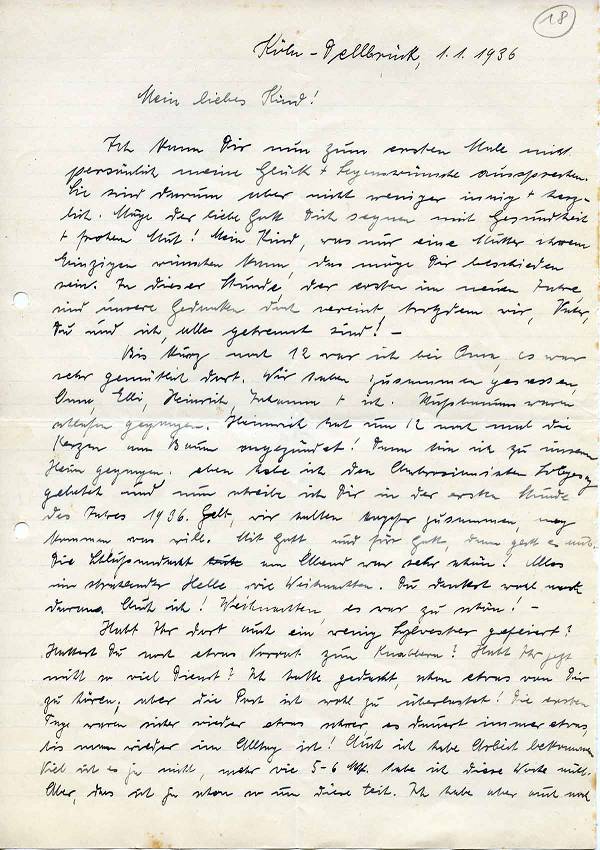 18
Köln-Dellbrück, 1.1.1936
Mein liebes Kind!
Ich kann Dir nun zum ersten Male nicht
persönlich meine Glück + Segenswünsche aussprechen.
Sie sind darum aber nicht weniger innig + herz-
lich. Möge der liebe Gott Dich segnen mit Gesundheit
+ frohem Mut! Mein Kind, was nur eine Mutter ihrem
Einzigen wünschen kann, das möge Dir beschieden
sein. In dieser Stunde, der ersten im neuen Jahre
sind unsere Gedanken doch vereint, trotzdem wir, Vater,
Du und ich, alle getrennt sind! –
Bis kurz nach 12 war ich bei Oma, es war
sehr gemütlich dort. Wir haben zusammen gesessen,
Oma, Elli, Heinrich, Johanna + ich. Nußbaums waren
schlafen gegangen. Heinrich hat um 12 noch mal die
Kerzen am Baum angezündet! Dann bin ich zu unserm
Heim gegangen. eben habe ich den Ambrosianischen Lobgesang
gebetet und nun schreibe ich Dir in der ersten Stunde
des Jahres 1936. Gelt, wir halten tapfer zusammen, mag
kommen was will. Mit Gott und für Gott, dann geht es
Die Schlußandacht am Abend war sehr schön! Alles
in strahlender Helle wie Weihnachten. Du denkst wohl noch
daran. Auch ich! Weihnachten es war zu schön! –
Habt Ihr dort auch ein wenig Sylvester gefeiert?
Hattest Du noch etwas Vorrat zum Knabbern? Habt Ihr jetzt
nicht so viel Dienst? Ich hatte gedacht, schon etwas von Dir
zu hören, aber die Post ist wohl zu überlastet! Die ersten
Tage waren sicher wieder etwas schwer es dauert immer etwas,
bis man wieder im Alltag ist! Auch ich habe Arbeit bekommen
Viel ist es ja nicht, mehr wie 5-6 M. habe ich diese Woche nicht.
Aber, das ist ja schon so um diese Zeit. Ich habe aber auch noch